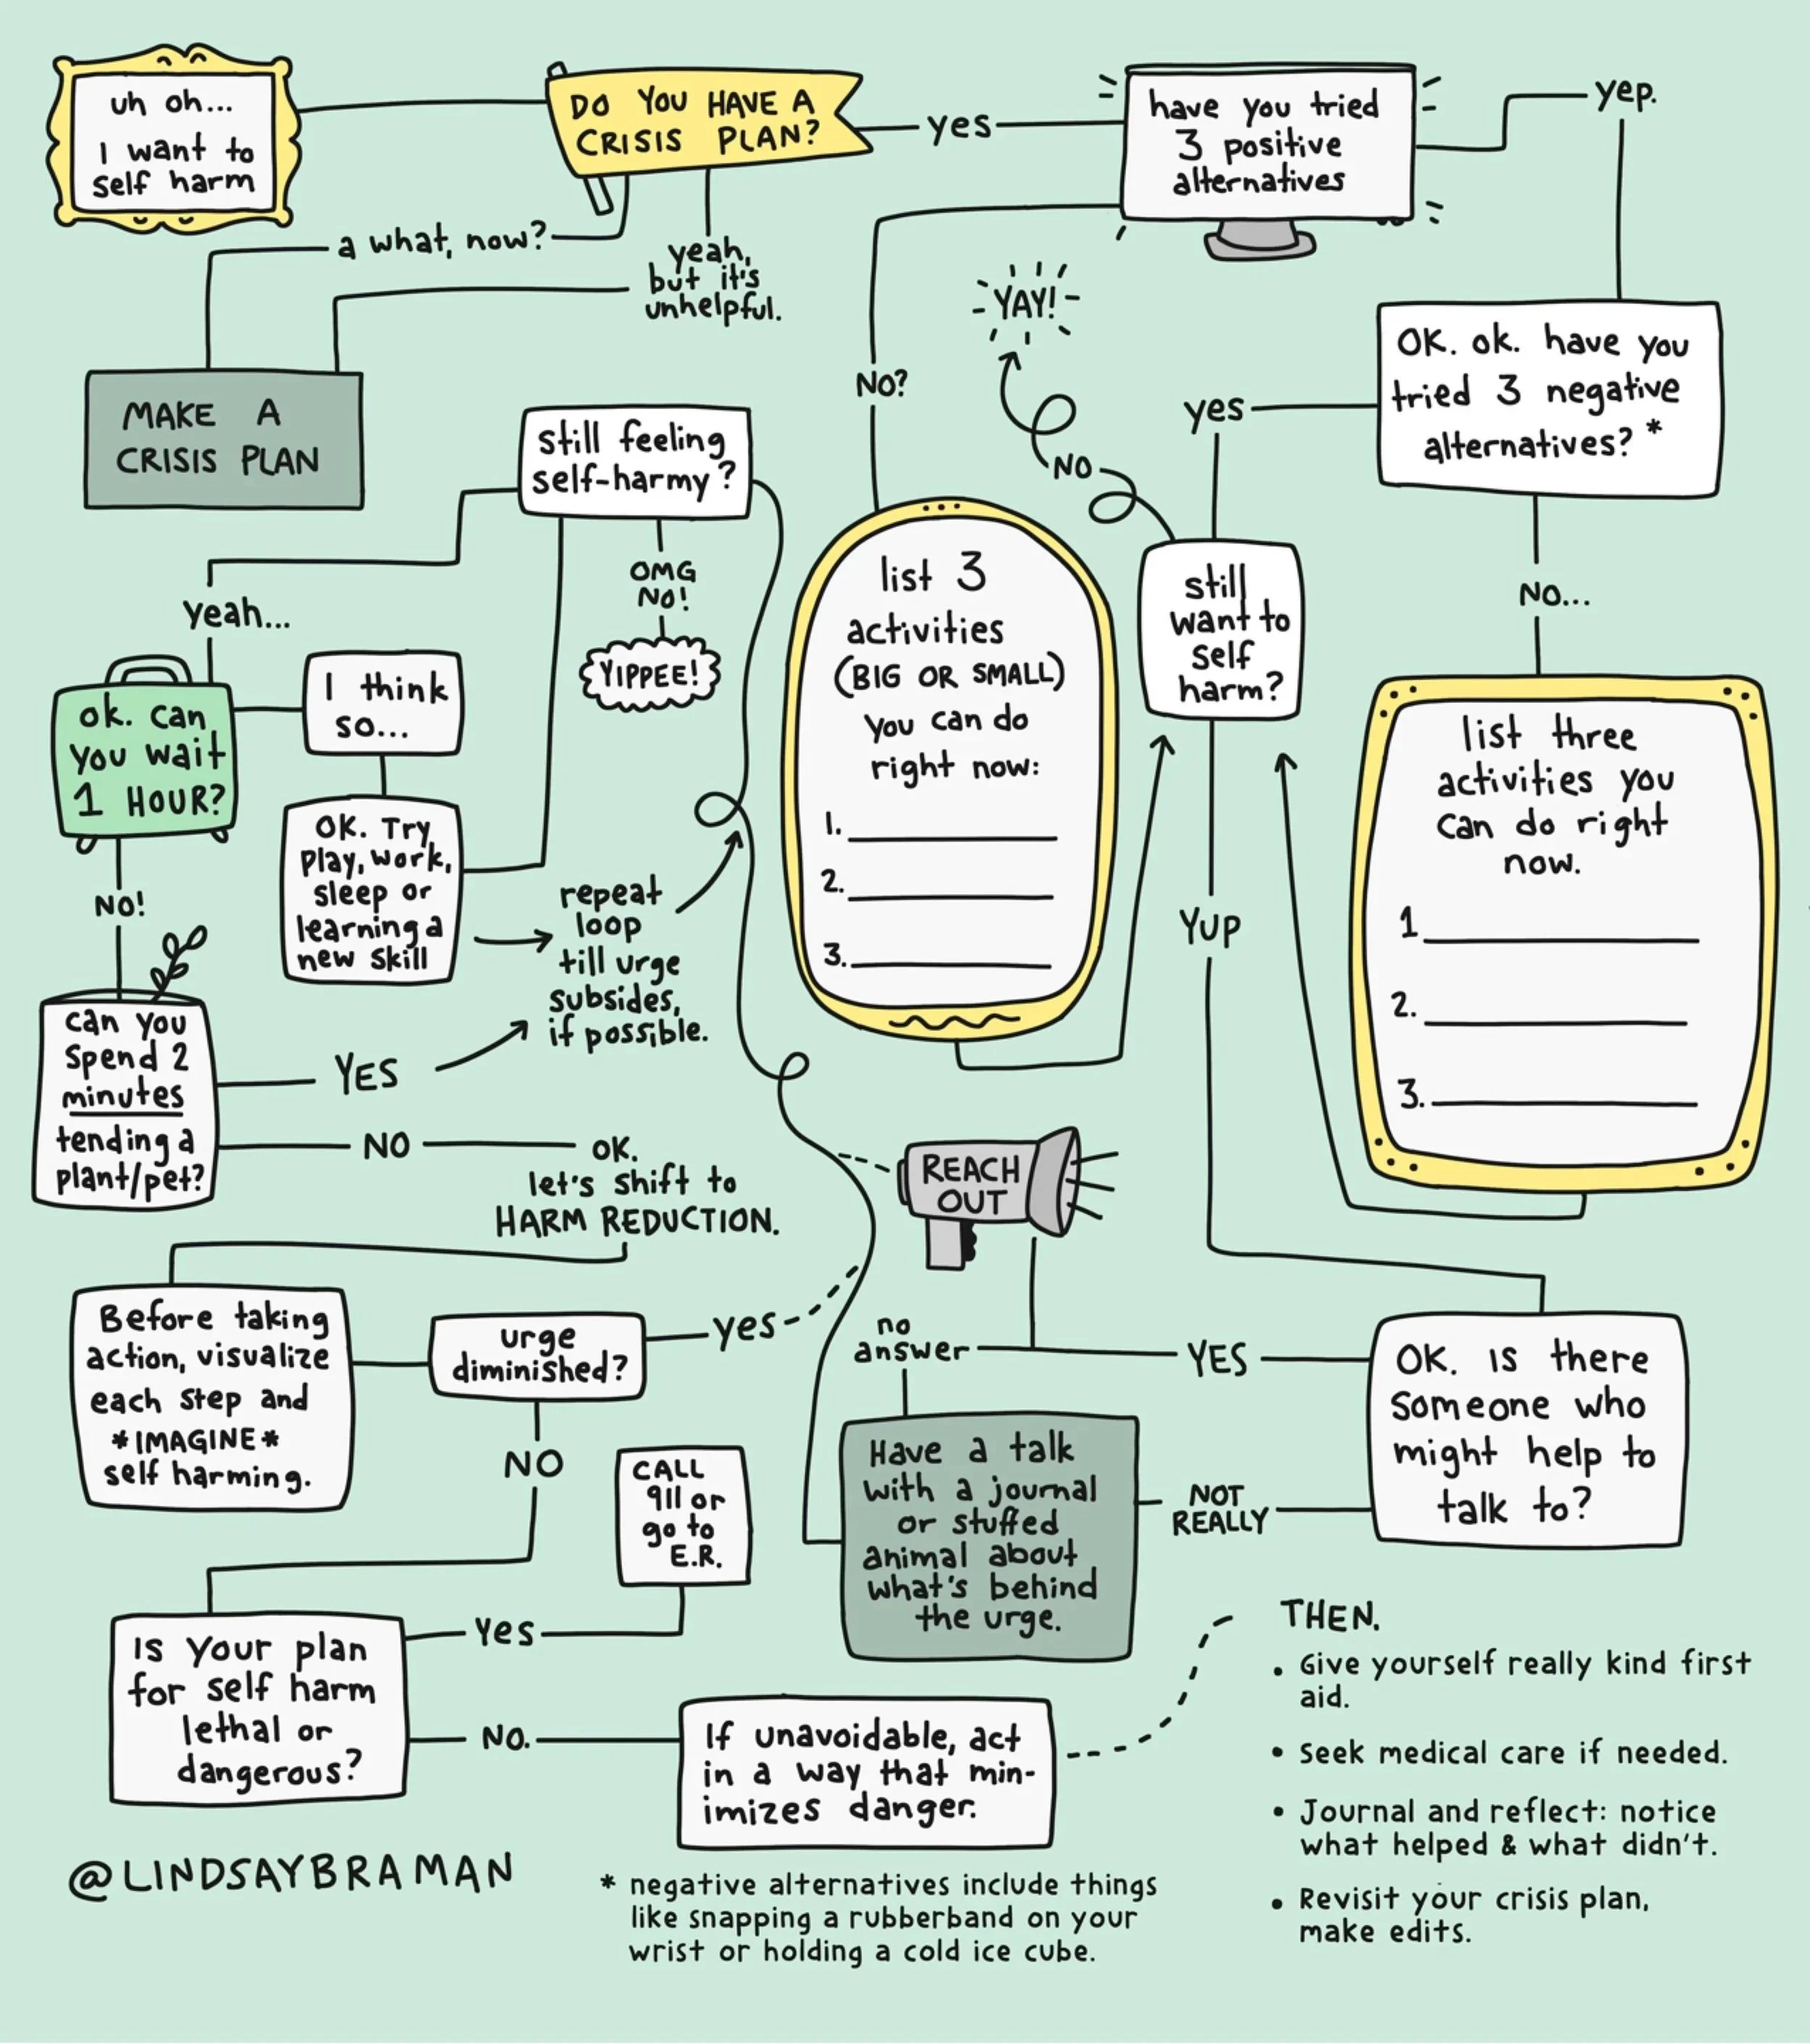 uh oh...
I want to
self harm
DO YOU HAVE A
CRISIS PLAN?
yes
have you tried
3 positive
alternatives
yep.
a what, now?
yeah,
but it's
unhelpful.
MAKE A
CRISIS PLAN
NO?
YAY!
NO
yes
OK. ok. have you
tried 3 negative
alternatives? *
NO...
still feeling
self-harmy?
yeah...
OMG
NO!
YIPPEE!
ok. can
you wait
1 HOUR?
I think
so...
OK. Try
play, work,
sleep or
learning a
new skill
NO!
repeat
loop
till urge
subsides,
if possible.
list 3
activities
(BIG OR SMALL)
you can do
right now:
1.
2.
3.
still
want to
self
harm?
list three
activities you
can do right
now.
1
2.
3.
Yup
can you
spend 2
minutes
tending a
plant/pet?
YES
NO
OK.
let's shift to
HARM REDUCTION.
REACH
OUT
Before taking
action, visualize
each step and
*IMAGINE*
self harming.
urge
diminished?
yes
NO
no
answer
YES
OK. IS there
someone who
might help to
talk to?
NOT
REALLY
Have a talk
with a journal
or stuffed
animal about
what's behind
the urge.
CALL
911 or
go to
E.R.
Is your plan
for self harm
lethal or
dangerous?
Yes
NO.
If unavoidable, act
in a way that min-
imizes danger.
THEN.
• Give yourself really kind first
aid.
• Seek medical care if needed.
• Journal and reflect: notice
what helped & what didn't.
• Revisit your crisis plan,
make edits.
@LINDSAYBRAMAN
* negative alternatives include things
like snapping a rubberband on your
wrist or holding a cold ice cube.